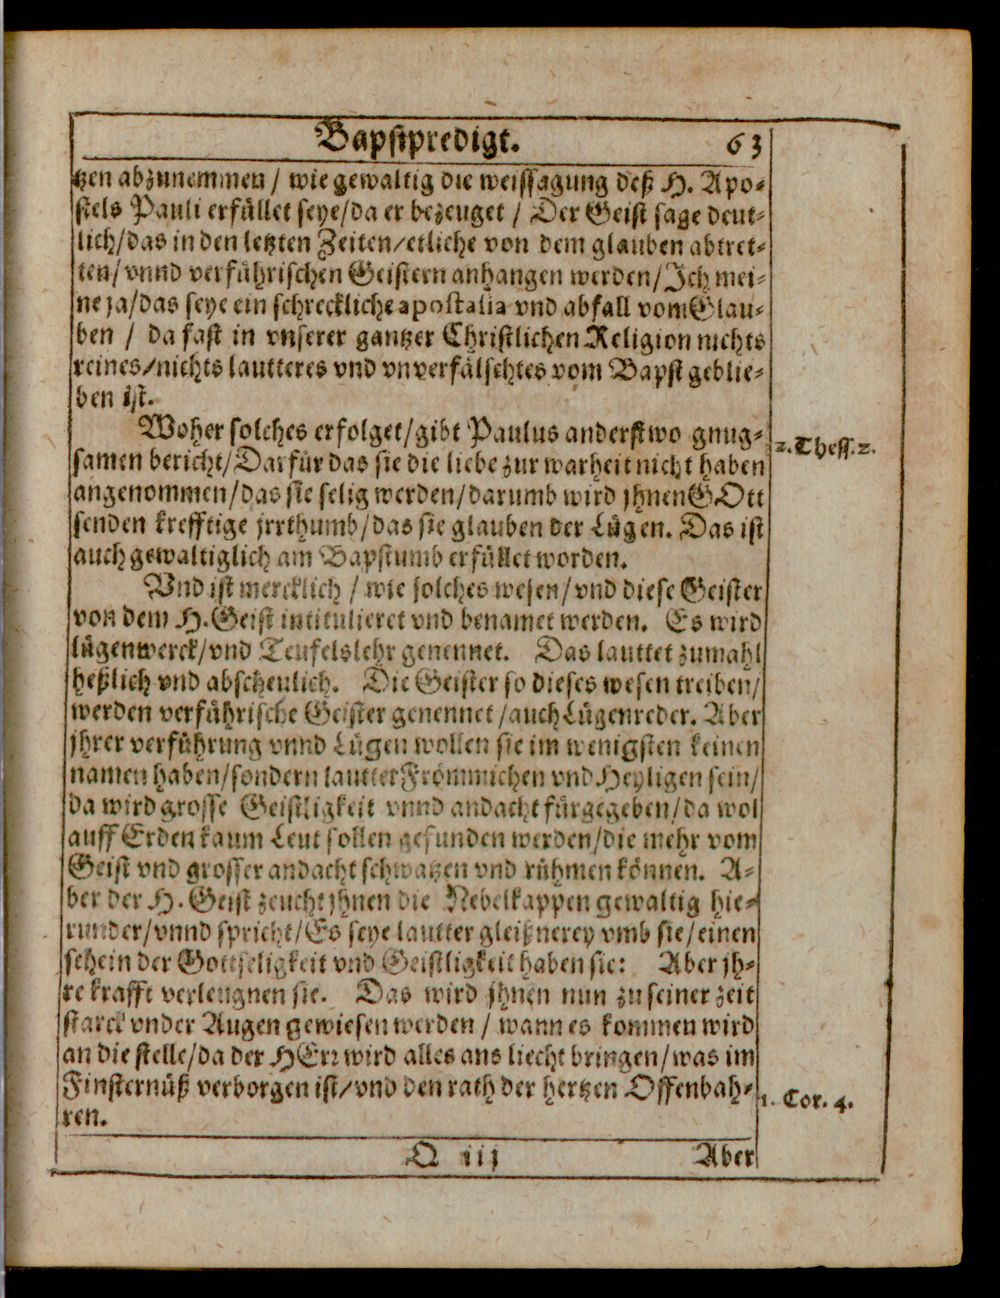 Bapstpredigt. 63
tzen abzunemmen / wie gewaltig die weissagung deß H. Apo-
stels Pauli erfüllet seye/da er bezeuget / Der Geist sage deut-
lich/das in den letzten Zeiten/etliche von dem glauben abtret-
ten/vnnd verführischen Geistern anhangen werden/Ich mei-
ne ja/das seye ein schreckliche apostasia vnd abfall vom Glau-
ben / da fast in vnserer gantzer Christlichen Religion nichts
reines/nichts lautteres vnd vnverfälschtes vom Bapst geblie-
ben ist.
Woher solches erfolget/gibt Paulus anderstwo gnug-
2. Thess. 2.
samen bericht/Darfür das sie die liebe zur warheit nicht haben
angenommen/das sie selig werden/darumb wird jhnen GOtt
senden krefftige jrrthumb/das sie glauben der Lügen. Das ist
auch gewaltiglich am Bapstumb erfüllet worden.
Vnd ist mercklich / wie solches wesen/vnd diese Geister
von dem H. Geist intitulieret vnd benamet werden. Es wird
lügenwerck/vnd Teufelslehr genennet. Das lauttet zumahl
heßlich vnd abscheulich. Die Geister so dieses wesen treiben/
werden verführische Geister genennet/auch Lügenreder. Aber
jhrer verführung vnnd Lügen wollen sie im wenigsten keinen
namen haben/sondern lautter Frömmichen vnd Heyligen sein/
da wird grosse Geistligkeit vnnd andacht fürgegeben/da wol
auff Erden kaum Leut sollen gefunden werden/die mehr vom
Geist vnd grosser andacht schwatzen vnd rühmen können. A-
ber der H. Geist zeucht jhnen die Nebelkappen gewaltig hie-
runder/vnnd spricht/Es seye lautter gleißnerey vmb sie/einen
schein der Gottseligkeit vnd Geistligkeit haben sie: Aber jh-
re krafft verleugnen sie. Das wird jhnen nun zu seiner zeit
starck vnder Augen gewiesen werden / wann es kommen wird
an die stelle/da der HErr wird alles ans liecht bringen/was im
Finsternüß verborgen ist/vnd den rath der hertzen Offenbah-
1. Cor. 4.
ren.
Q iij Aber